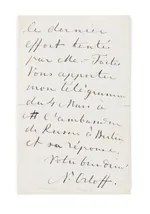 le dernier
effort tenté
par
Vous apporter
mon télégramme
du 4 Mars à
l'ambassade
de Russie à Berlin
et sa réponse.
Votre
N. Orloff.